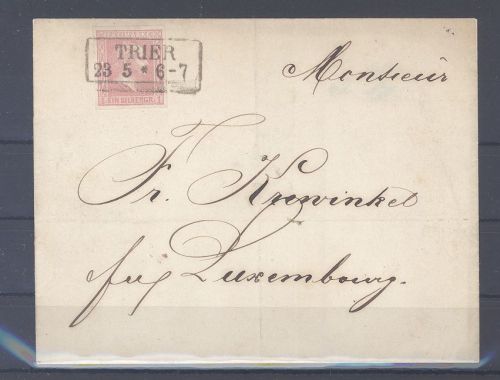 FREIMARKE
TRIER
23 5 * 6-7
1 EIN SILBERGR. 1
Monsieur
Fr. Krewinkel
Luxembourg.